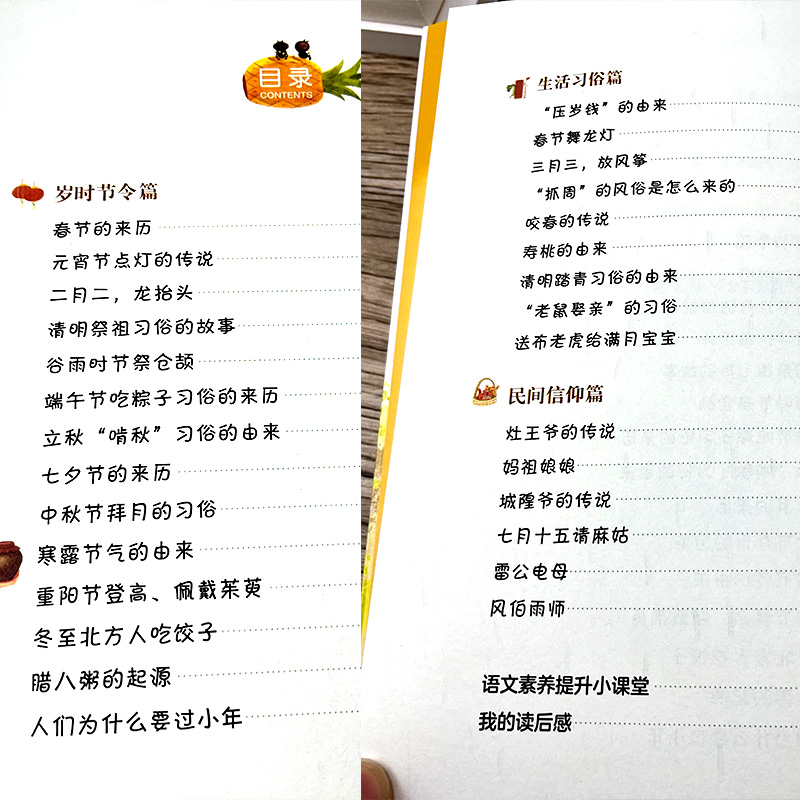 目录
CONTENTS
岁时节令篇
春节的来历
元宵节点灯的传说
二月二，龙抬头
清明祭祖习俗的故事
谷雨时节祭仓颉
端午节吃粽子习俗的来历
立秋“啃秋”习俗的由来
七夕节的来历
中秋节拜月的习俗
寒露节气的由来
重阳节登高、佩戴茱萸
冬至北方人吃饺子
腊八粥的起源
人们为什么要过小年
生活习俗篇
“压岁钱”的由来
春节舞龙灯
三月三，放风筝
“抓周”的风俗是怎么来的
咬春的传说
寿桃的由来
清明踏青习俗的由来
“老鼠娶亲”的习俗
送布老虎给满月宝宝
民间信仰篇
灶王爷的传说
妈祖娘娘
城隍爷的传说
七月十五请麻姑
雷公电母
风伯雨师
语文素养提升小课堂
我的读后感